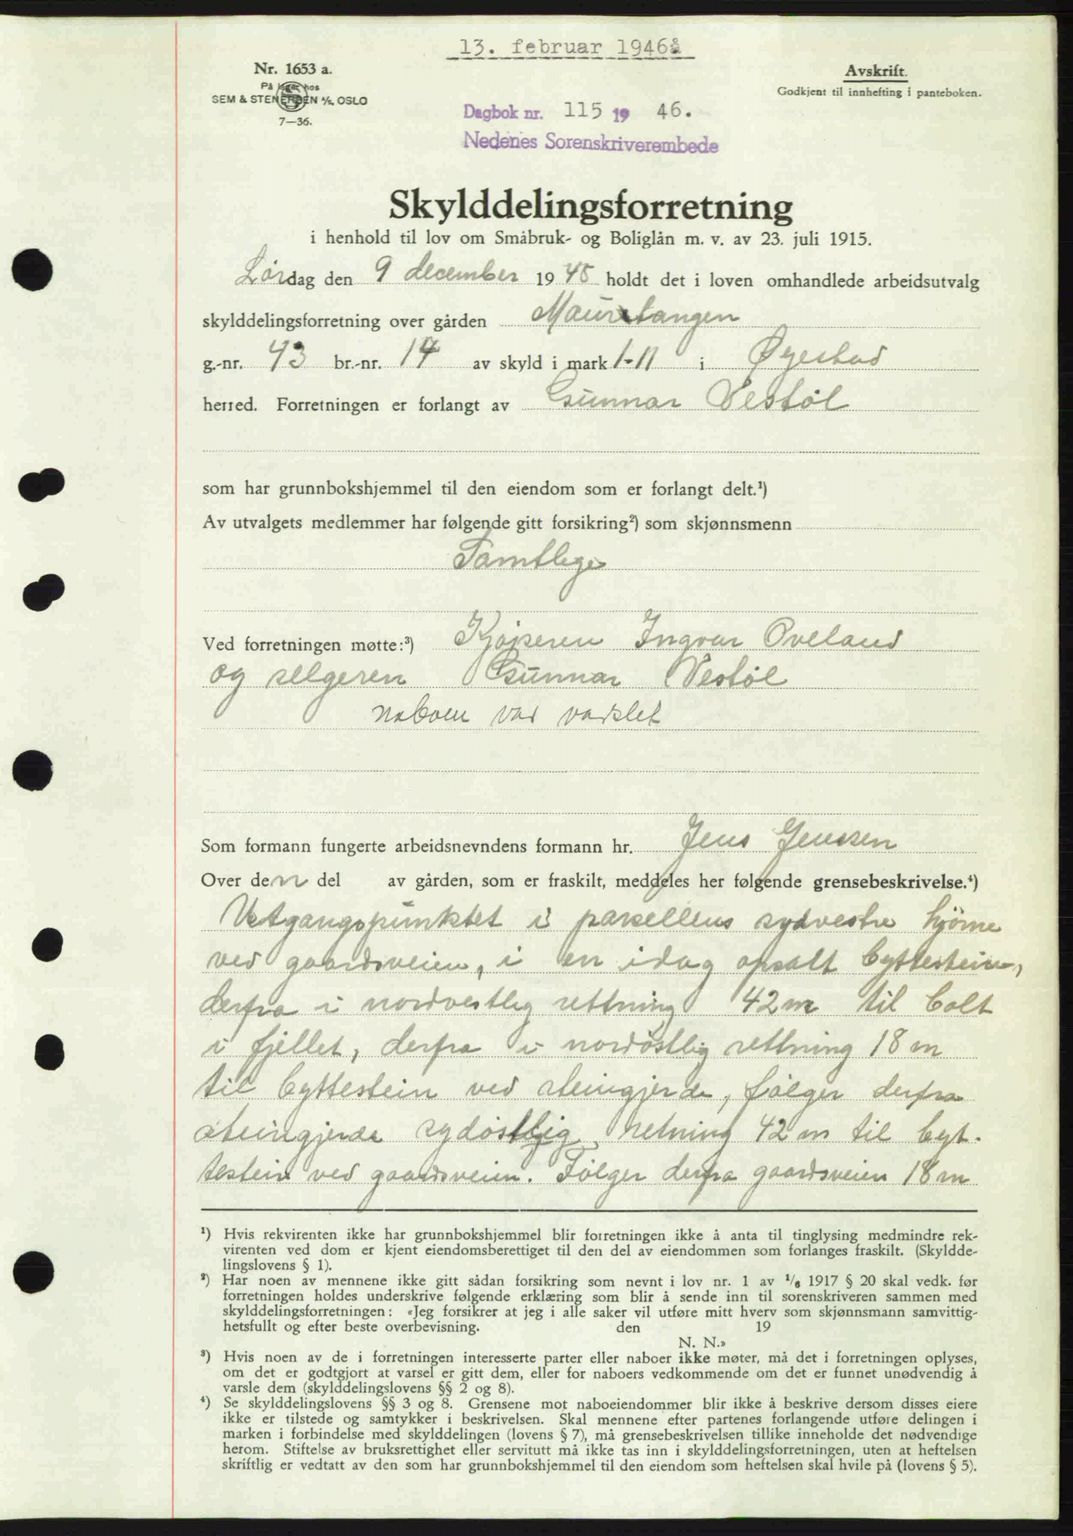 13. februar 1946
Nr. 1653 a.
På lager hos
SEM & STENERSEN A/S, OSLO
7—36.
Avskrift.
Godkjent til innhefting i panteboken.
Dagbok nr. 115 19 46.
Nedenes Sorenskriverembede
Skylddelingsforretning
i henhold til lov om Småbruk- og Boliglån m. v. av 23. juli 1915.
Lørdag den 9 december 1945 holdt det i loven omhandlede arbeidsutvalg
skylddelingsforretning over gården Maurtangen
g.-nr. 43 br.-nr. 14 av skyld i mark 1-11 i Øyestad
herred. Forretningen er forlangt av Gunnar Vestøl
som har grunnbokshjemmel til den eiendom som er forlangt delt.¹)
Av utvalgets medlemmer har følgende gitt forsikring²) som skjønnsmenn
Samtlige
Ved forretningen møtte:³) Kjøperen Ingvar Oveland
og selgeren Gunnar Vestøl
naboen var varslet
Som formann fungerte arbeidsnevndens formann hr. Jens Jenssen
Over den del av gården, som er fraskilt, meddeles her følgende grensebeskrivelse.⁴)
Utgangspunktet i parsellens sydvestre hjørne
ved gaardsveien, i en idag opsatt byttestein,
derfra i nordvestlig rettning 42 m til bolt
i fjellet, derfra i nordöstlig rettning 18 m
til byttestein ved steingjerde, følger derfra
steingjerde sydöstlig retning 42 m til byt-
testein ved gaardsveien. Følger derfra gaardsveien 18 m
¹) Hvis rekvirenten ikke har grunnbokshjemmel blir forretningen ikke å anta til tinglysing medmindre rek-
virenten ved dom er kjent eiendomsberettiget til den del av eiendommen som forlanges fraskilt. (Skyldde-
lingslovens § 1).
²) Har noen av mennene ikke gitt sådan forsikring som nevnt i lov nr. 1 av 1/6 1917 § 20 skal vedk. før
forretningen holdes underskrive følgende erklæring som blir å sende inn til sorenskriveren sammen med
skylddelingsforretningen: «Jeg forsikrer at jeg i alle saker vil utføre mitt hverv som skjønnsmann samvittig-
hetsfullt og efter beste overbevisning. den 19
N. N.»
³) Hvis noen av de i forretningen interesserte parter eller naboer ikke møter, må det i forretningen oplyses,
om det er godtgjort at varsel er gitt dem, eller for naboers vedkommende om det er funnet unødvendig å
varsle dem (skylddelingslovens §§ 2 og 8).
⁴) Se skylddelingslovens §§ 3 og 8. Grensene mot naboeiendommer blir ikke å beskrive dersom disses eiere
ikke er tilstede og samtykker i beskrivelsen. Skal mennene efter partenes forlangende utføre delingen i
marken i forbindelse med skylddelingen (lovens § 7), må grensebeskrivelsen tillike inneholde det nødvendige
herom. Stiftelse av bruksrettighet eller servitutt må ikke tas inn i skylddelingsforretningen, uten at heftelsen
skriftlig er vedtatt av den som har grunnbokshjemmel til den eiendom som heftelsen skal hvile på (lovens § 5).